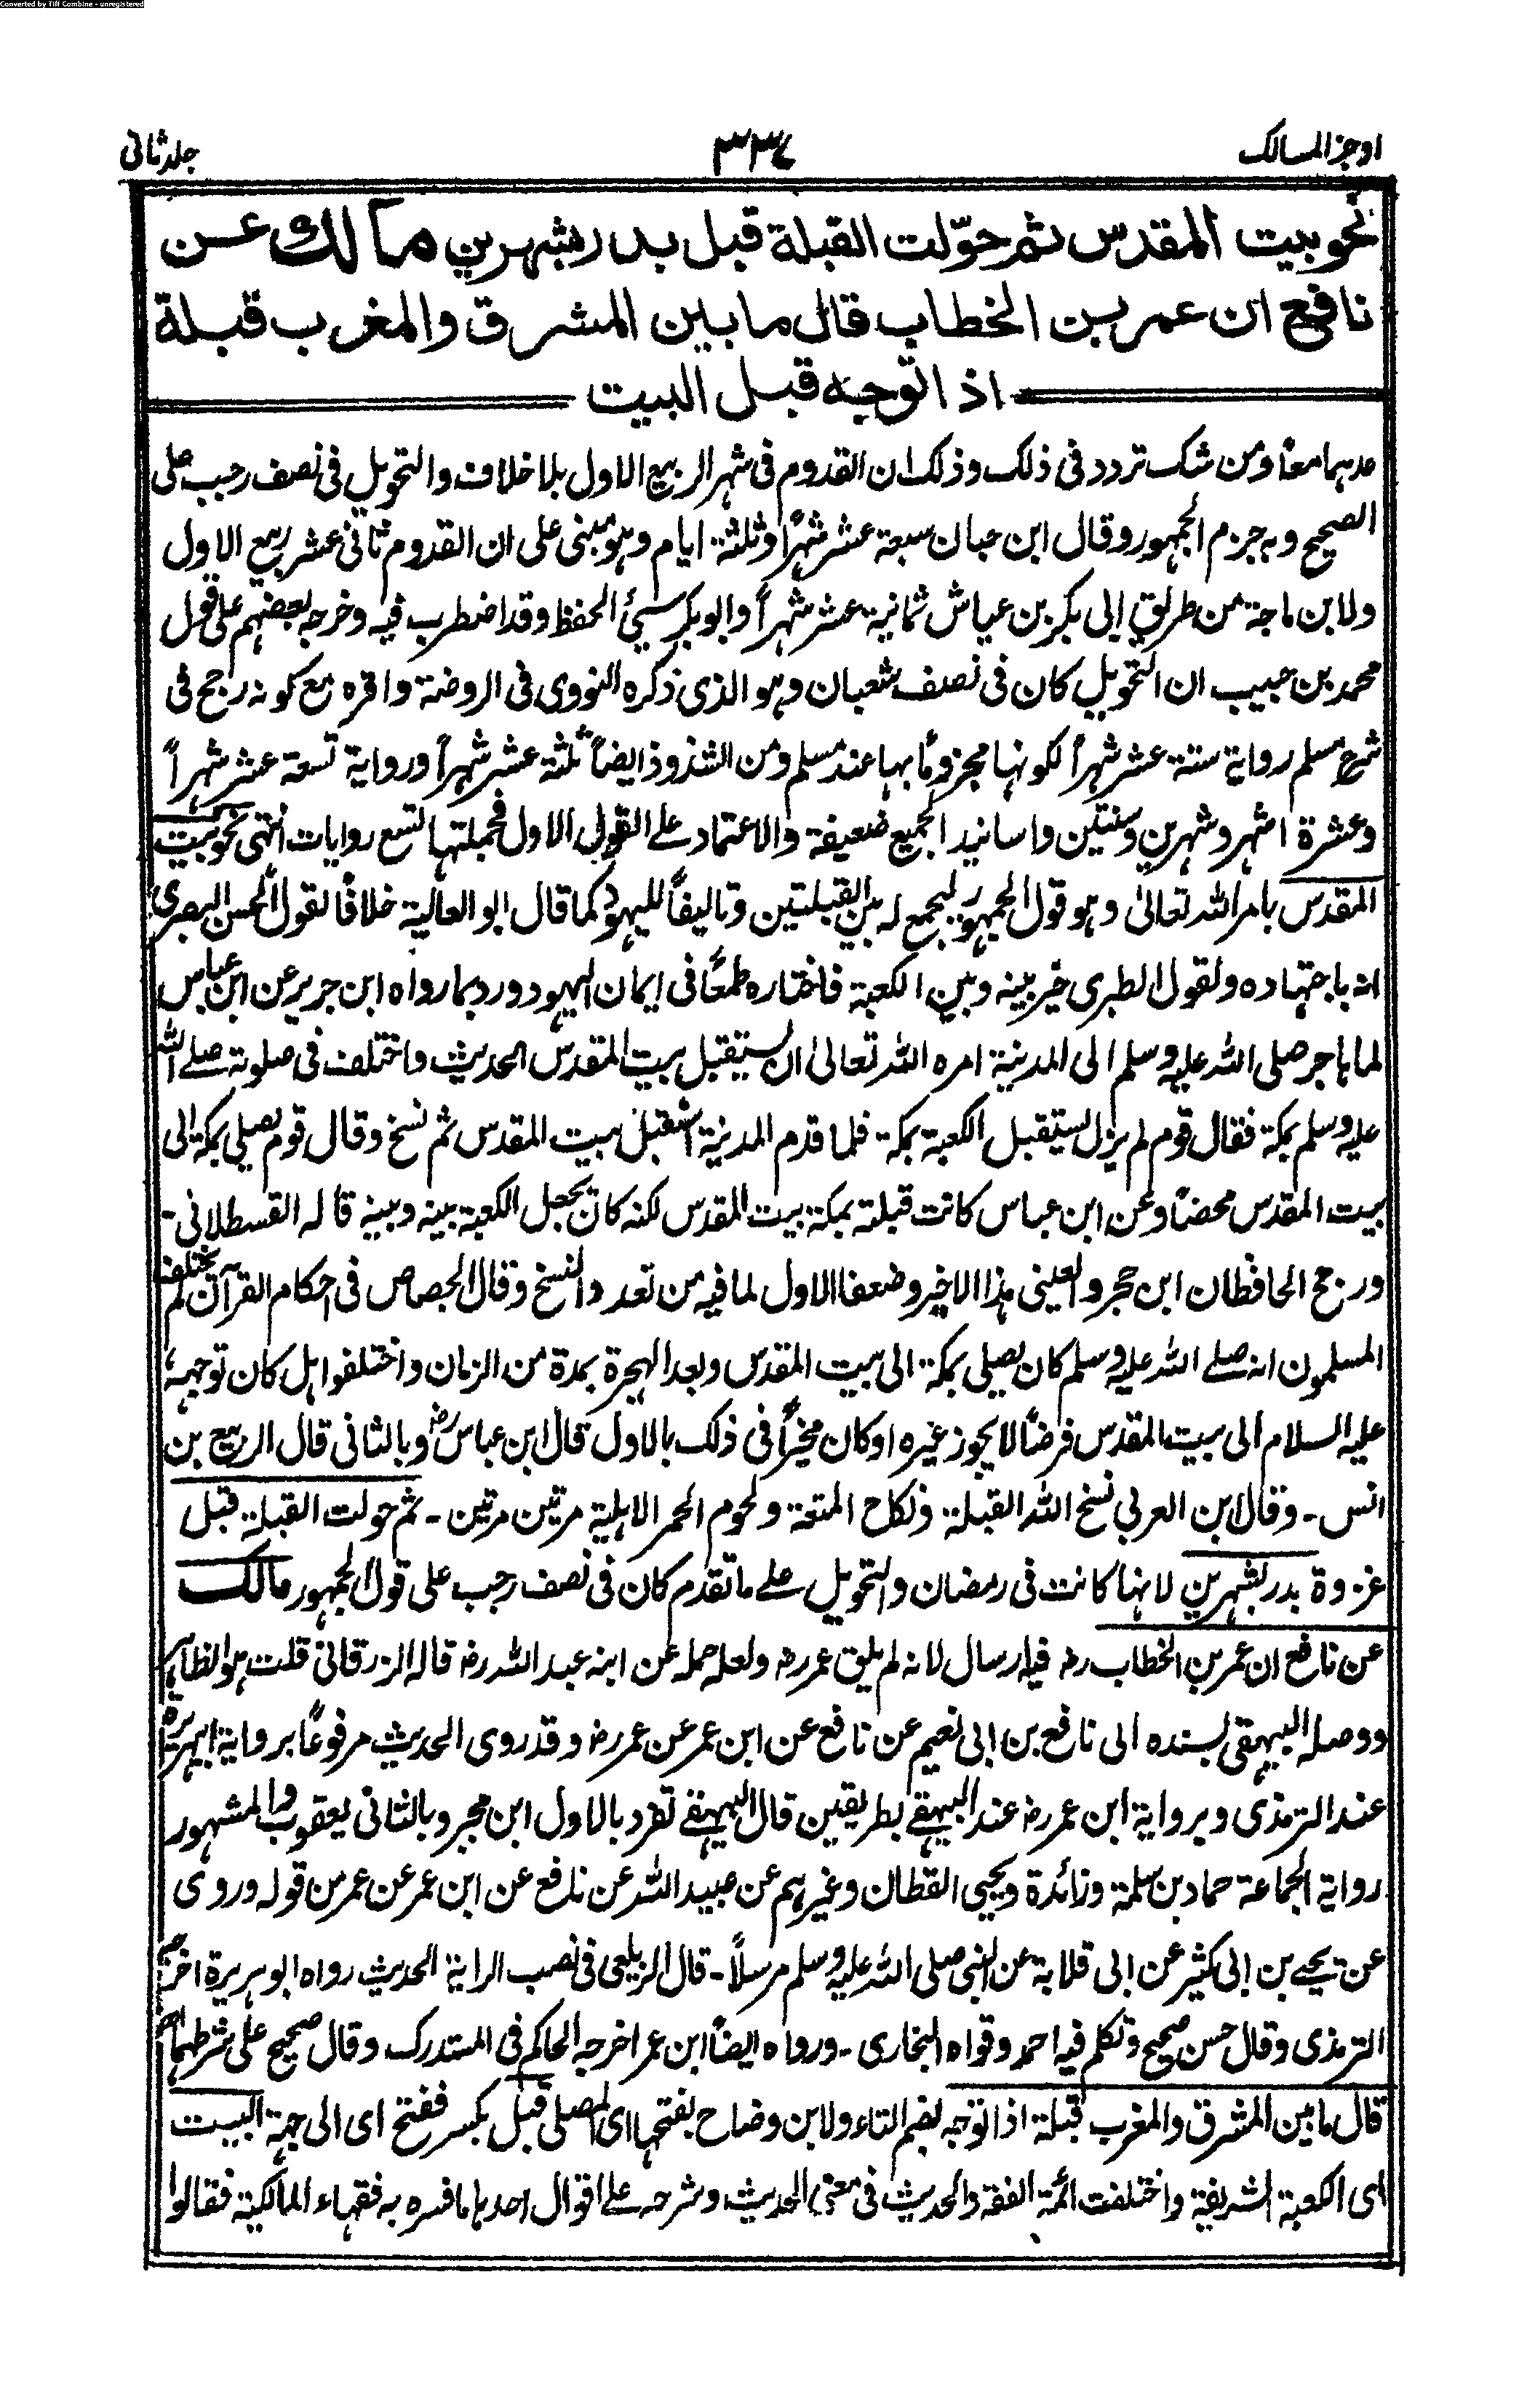 Converted by Tiff Combine - unregistered
اوجز المسالك
٣٣٤
جلد ثانی
نحو بيت المقدس ثم حوّلت القبلة قبل بدر بشهرين مالك عن
نافع ان عمر بن الخطاب قال ما بين المشرق والمغرب قبلة
اذا توجه قبل البيت
عدهما معاً ومن شك تردد فى ذلك وذلك ان القدوم فى شهر الربيع الاول بلا خلاف والتحويل فى نصف رجب على
الصحيح وبه جزم الجمهور وقال ابن حبان سبعة عشر شهراً وثلثة ايام وهو مبنى على ان القدوم ثانى عشر ربيع الاول
ولابن ماجة من طريق ابى بكر بن عياش ثمانية عشر شهراً وابو بكر سيئ الحفظ وقد اضطرب فيه وخرجه بعضهم على قول
محمد بن حبيب ان التحويل كان فى نصف شعبان وهو الذى ذكره النووى فى الروضة واقره مع كونه رجح فى
شرح مسلم رواية ستة عشر شهراً لكونها مجزوماً بها عند مسلم ومن الشذوذ ايضاً ثلثة عشر شهراً ورواية تسعة عشر شهراً
وعشرة اشهر وشهرين وسنتين واسانيد الجميع ضعيفة والاعتماد على القول الاول فجملتها تسع روايات انتهى نحو بيت
المقدس بامر الله تعالى وهو قول الجمهور ليجمع له بين القبلتين وتاليفاً لليهود كما قال ابو العالية خلافاً لقول الحسن البصرى
انه باجتهاده ولقول الطبرى خير بينه وبين الكعبة فاختاره طمعاً فى ايمان اليهود ورد بما رواه ابن جرير عن ابن عباس
لما هاجر صلى الله عليه وسلم الى المدينة امره الله تعالىٰ ان يستقبل بيت المقدس الحديث واختلف فى صلوته صلى الله
عليه وسلم بمكة فقال قوم لم يزل يستقبل الكعبة بمكة فلما قدم المدينة استقبل بيت المقدس ثم نسخ وقال قوم يصلى بمكة الى
بيت المقدس محضاً وعن ابن عباس كانت قبلته بمكة بيت المقدس لكنه كان يجعل الكعبة بينه وبينه قاله القسطلانى -
ورجح الحافظان ابن حجر والعينى هذا الاخير وضعفا الاول لما فيه من تعدد النسخ وقال الجصاص فى احكام القرآن لم يختلف
المسلمون انه صلى الله عليه وسلم كان يصلى بمكة الى بيت المقدس وبعد الهجرة بمدة من الزمان واختلفوا هل كان توجهه
عليه السلام الى بيت المقدس فرضاً لا يجوز غيره او كان مخيراً فى ذلك بالاول قال ابن عباس رض وبالثانى قال الربيع بن
انس - وقال ابن العربى نسخ الله القبلة ونكاح المتعة ولحوم الحمر الاهلية مرتين مرتين - ثم حولت القبلة قبل
غزوة بدر بشهرين لانها كانت فى رمضان والتحويل على ما تقدم كان فى نصف رجب على قول الجمهور مالك
عن نافع ان عمر بن الخطاب رض فيه ارسال لانه لم يلق عمر رض ولعله حمله عن ابنه عبد الله رض قاله الزرقانى قلت هو الظاهر
ووصله البيهقى بسنده الى نافع بن ابى نعيم عن نافع عن ابن عمر عن عمر رض وقد روى الحديث مرفوعاً برواية ابى هريرة
عند الترمذى وبرواية ابن عمر رض عند البيهقى بطريقين قال البيهقى تفرد بالاول ابن مجبر وبالثانى يعقوب والمشهور
رواية الجماعة حماد بن سلمة وزائدة ويحيى القطان وغيرهم عن عبيد الله عن نافع عن ابن عمر عن عمر من قوله وروى
عن يحيى بن ابى كثير عن ابى قلابة عن النبى صلى الله عليه وسلم مرسلاً - قال الزيلعى فى نصب الراية الحديث رواه ابو هريرة اخرجه
الترمذى وقال حسن صحيح وتكلم فيه احمد وقواه البخارى - ورواه ايضاً ابن عمر اخرجه الحاكم فى المستدرك وقال صحيح على شرطهما اھ
قال ما بين المشرق والمغرب قبلة اذا توجه بضم التاء ولابن وضاح بفتحها اى المصلى قبل بكسر ففتح اى الى جهة البيت
اى الكعبة الشريفة واختلفت ائمة الفقه والحديث فى معنى الحديث وشرحه على اقوال احدها ما فسره به فقهاء المالكية فقالوا